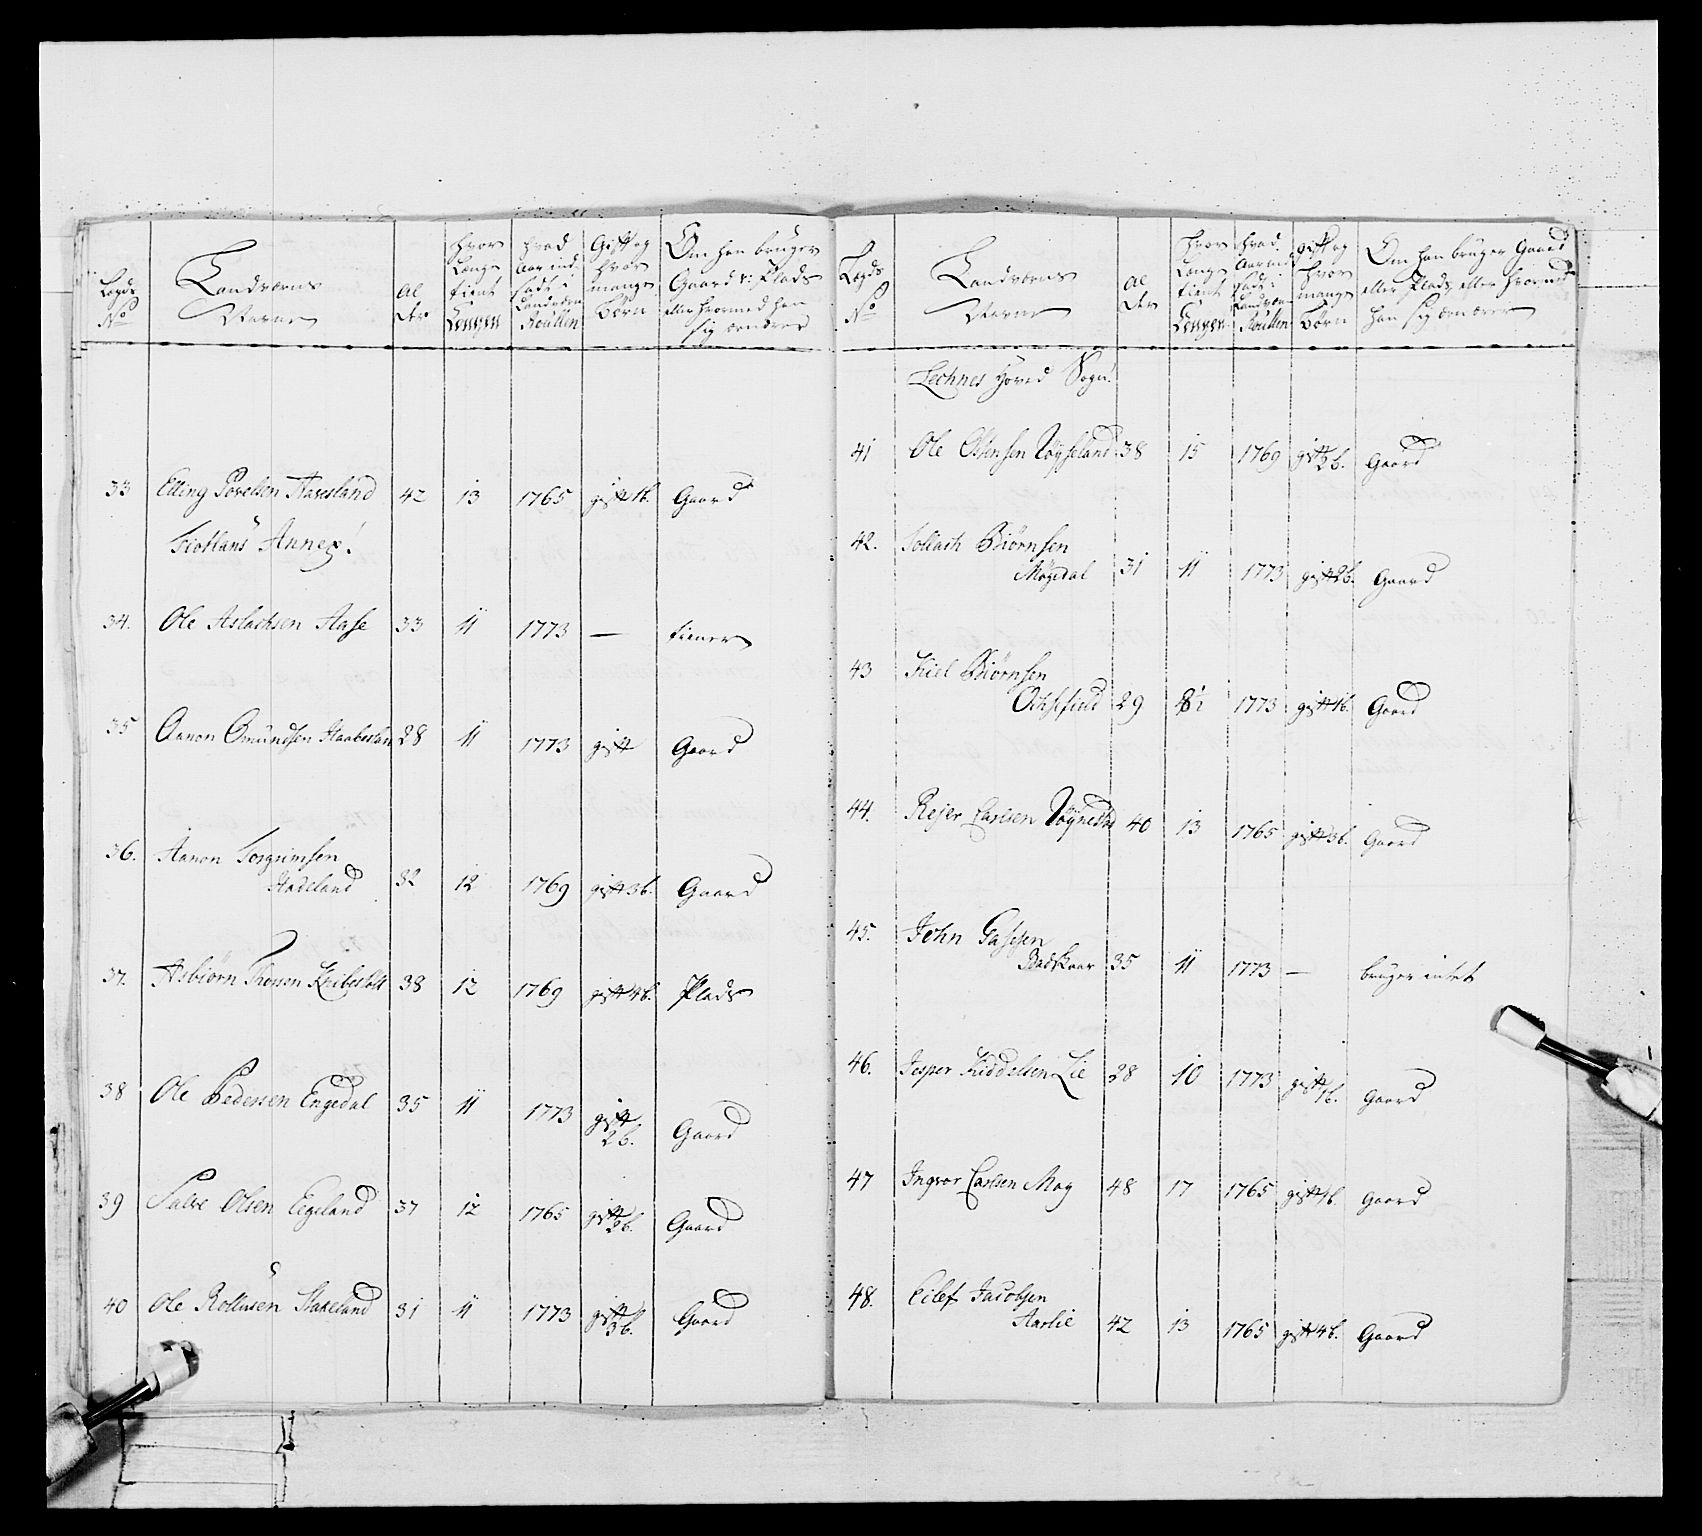 Lægds
No
Landværns
Navne
Al
der
hvor
Længe
tient
Tougen
hvad
Aar ind
sadt i
Landværn
Roullen
Gift og
hvor
mange
Børn
Om han bruger
Gaard el: Plads
eller hvormed han
sig ernærer
33 Elling Povelsen Haaesland 42 13 1765 gift 1b. Gaard
Fiotlans Annex!
34. Ole Aslachsen Aase 33 11 1773 — tiener
35 Aanon Omundsen 28 11 1773 gift Gaard
36. Aanon Torgrimsen
Stadeland 32 12 1769 gift 3b. Gaard
37. Asbiørn 38 12 1769 gift 4b. Plads
38 Ole Pedersen Engedal 35 11 1773 gift
2b. Gaard
39 Salve Olsen Egeland 37 12 1765 gift
2b. Gaard
40 Ole Rollufsen Stakeland 31 11 1773 gift
3b. Gaard
Lægds
No
Landværns
Navne
Al
der
hvor
Længe
tient
Tougen
hvad
Aar ind
sadt i
Landværn
Roullen
gift og
hvor
mange
Børn
Om han bruger Gaard
eller Plads, eller hvormed
han sig ernærer
Lechnes Hoved Sogn!
41 Ole Ostensen Røyseland 38 15 1769 gift
2b. Gaard
42. Sollach Biørnsen
Møgedal 31 11 1773 gift 2b. Gaard
43 Kiel Biørnsen
Ochsefield 29 1773 gift 1b. Gaard
44. Rejer Carlsen 40 13 1765 gift 3b. Gaard
45. John
35 11 1773 — bruger intet
46. Jesper Kiddelsen Lie 28 10 1773 gift
1b. Gaard
47 Ingvor Carlsen Moy 48 17 1765 gift 4b. Gaard
48. Eilef Jacobsen
Aarlie 42 13 1765 gift 4b. Gaard